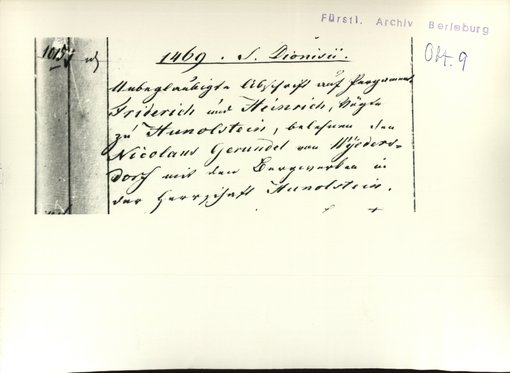 Fürstl. Archiv Berleburg
Okt. 9
1015
1469. S. Dionisii.
Unbeglaubigte Abschrift auf Pergament.
Friderich und Heinrich, Vögte
zu Hunolstein, belehnen den
Nicolaus Gerundel von
dorf mit den in
der Herrschaft Hunolstein.